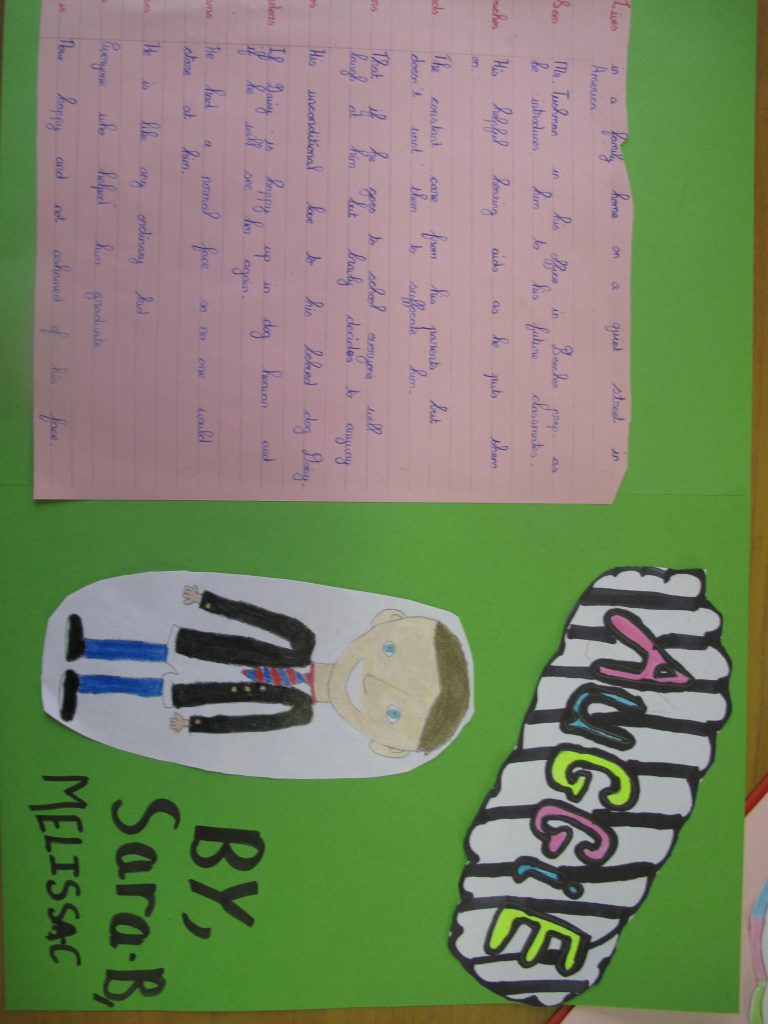 Lives in a family home on a quiet street in
America.
Sees Mr. Tushman in his office in Beecher prep. as
he introduces him to his future classmates.
His helpful hearing aids as he puts them
on.
The constant care from his parents but
doesn't want them to suffocate him.
That if he goes to school everyone will
laugh at him but bravely decides to anyway
His unconditional love to his beloved dog Daisy.
If Daisy is happy up in dog heaven and
if he will see her again.
He had a normal face so no one would
stare at him.
He is like any ordinary kid
Everyone who helped him graduate
Now happy and not ashamed of his face.
AUGGiE
BY,
Sara.B,
MELISSA.C